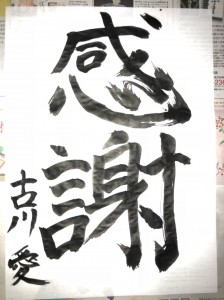 感謝
古川愛